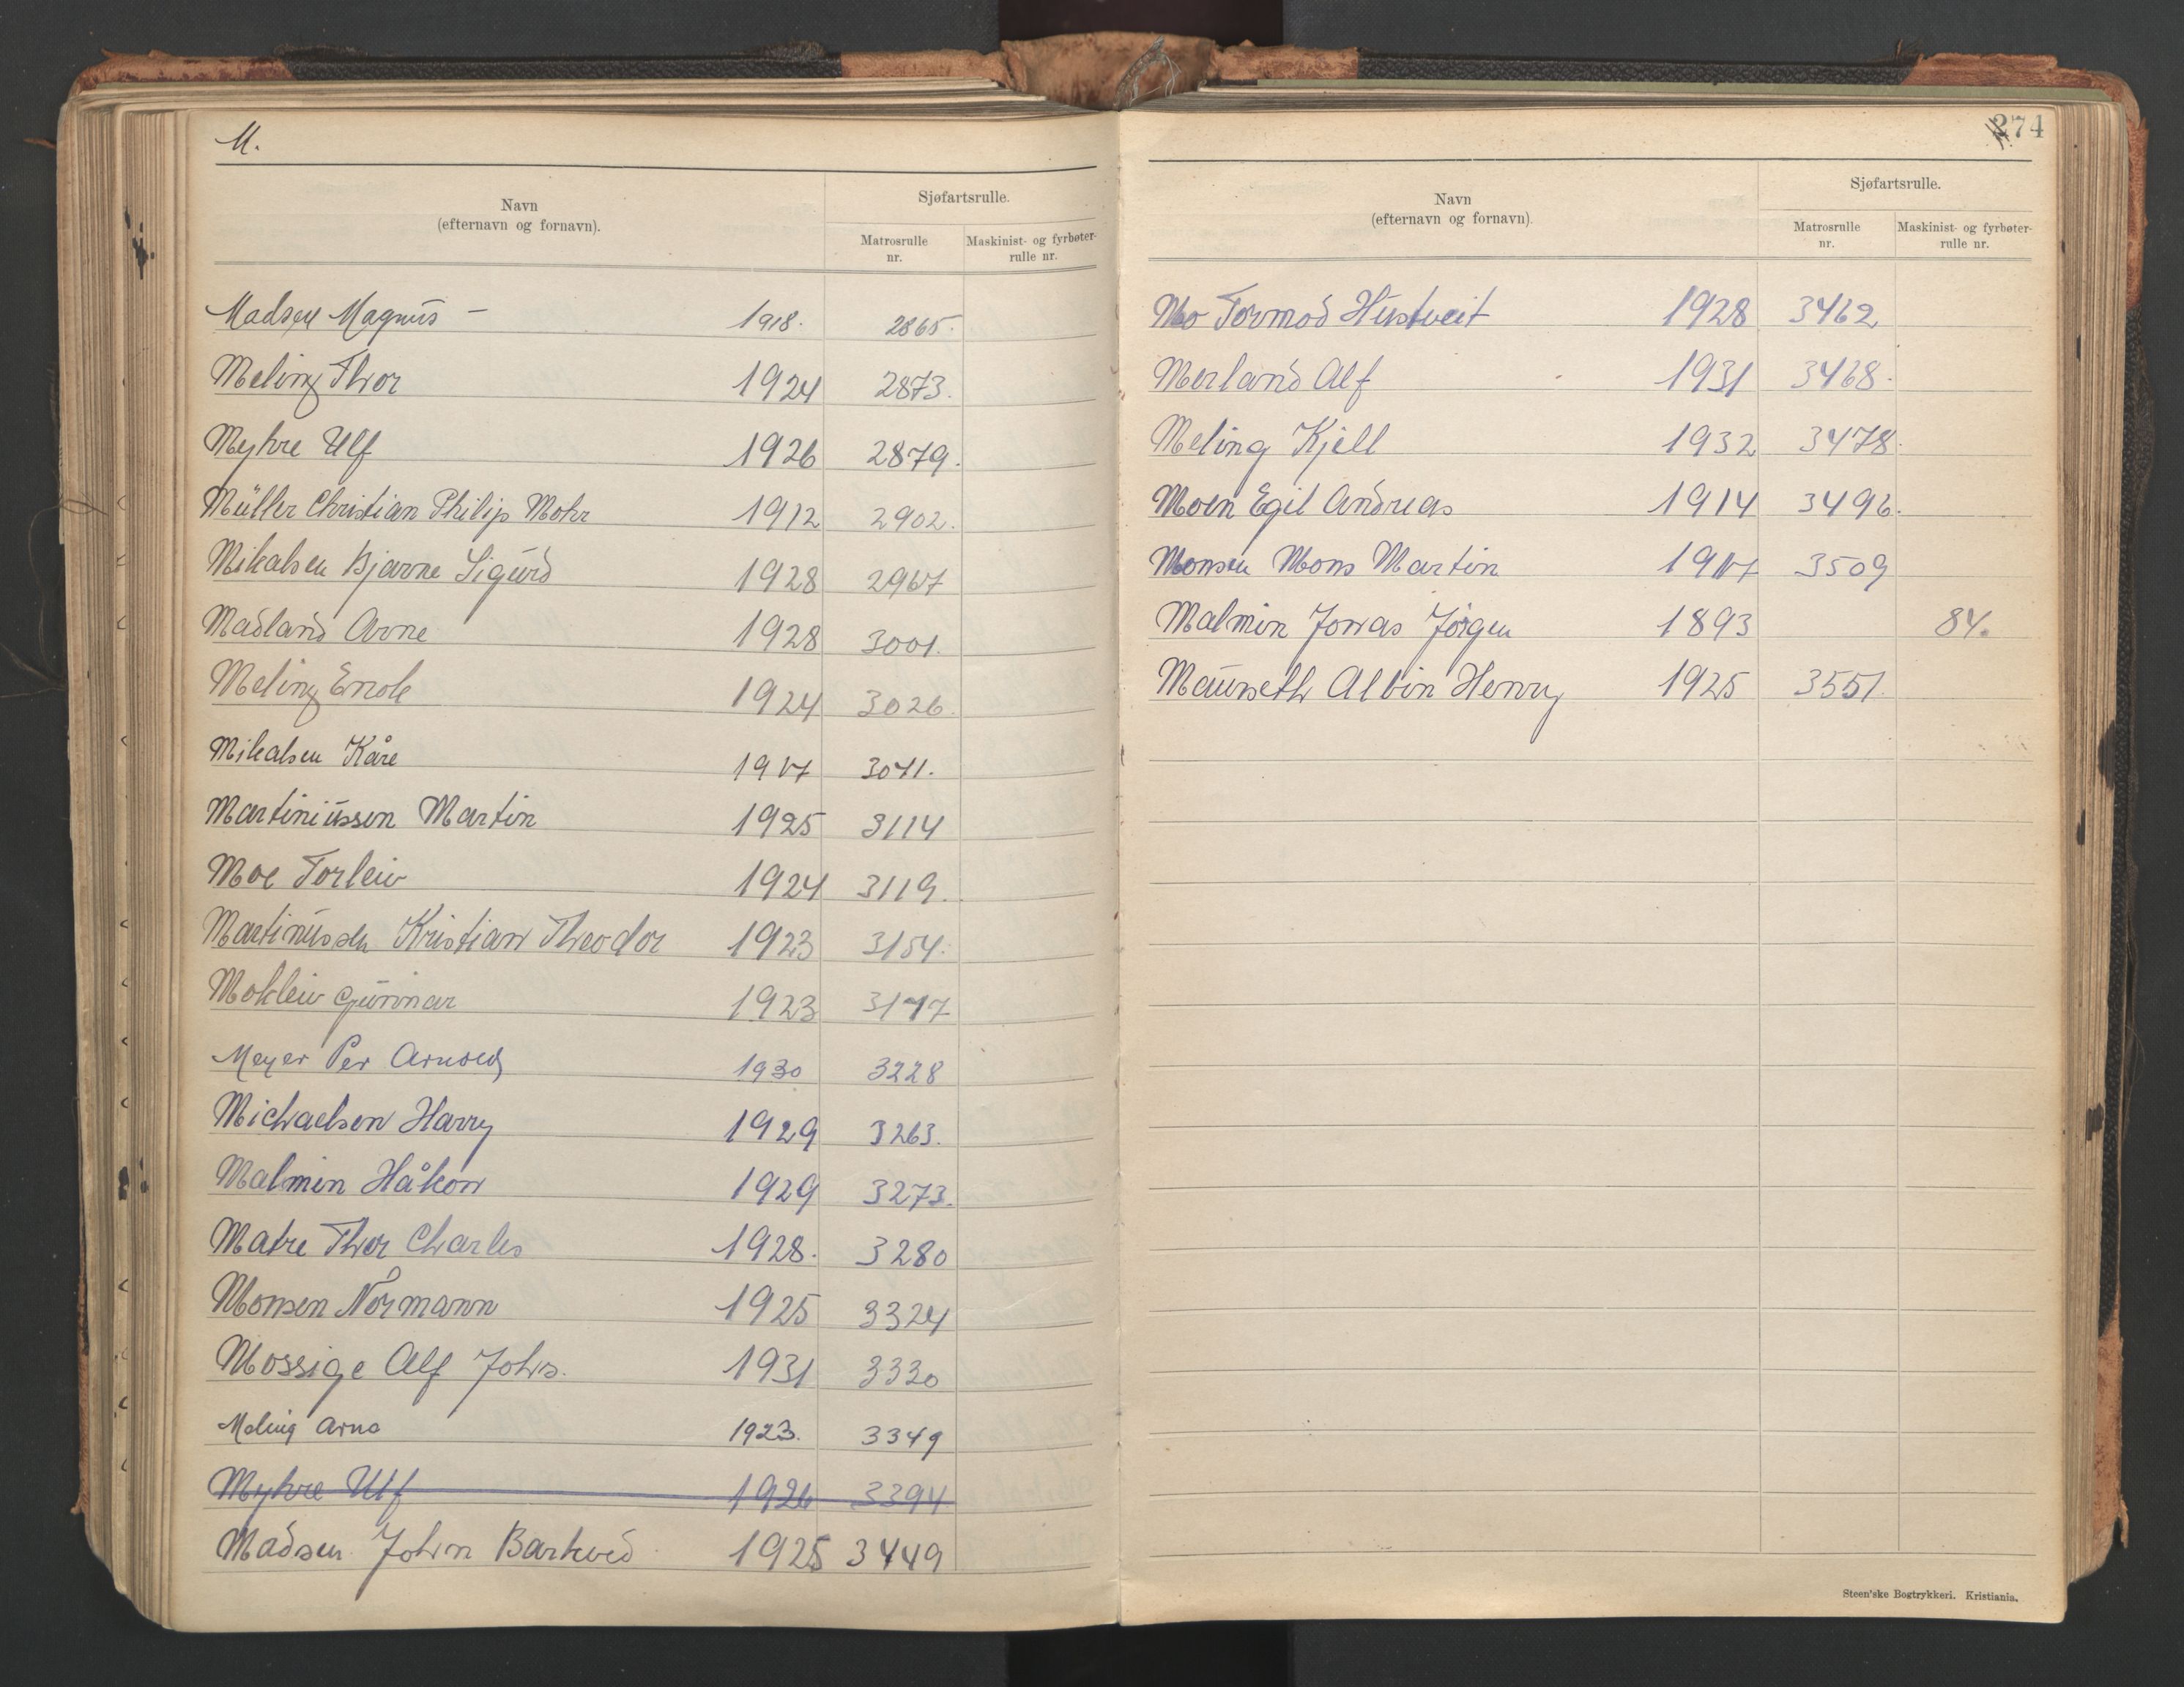 M.
Navn
(efternavn og fornavn).
Sjøfartsrulle.
Matrosrulle
nr.
Maskinist- og fyrbøter-
rulle nr.
Madsen Magnus – 1918. 2865.
Meling Thor 1924 2873.
Myhre Ulf 1926 2879.
Müller Christian Philip Mohr 1912 2902.
Mikalsen Bjarne Sigurd 1928 2967
Madland Arne 1928 3001.
Meling Enok 1924 3026.
Mikalsen Kåre 3041.
Martiniussen Martin 1925 3114
Moe Torleiv 1924 3119.
Martinussen Kristian Theodor 1923 3154.
Mokleiv Gunnar 1923
Meyer Per Arnold 1930 3228
Michaelsen Harry 1929 3263.
Malmin Håkon 1929 3273.
Matre Thor Charles 1928. 3280
Monsen Normann 1925 3324
Mossige Alf Johs. 1931 3330
Meling Arne 1923. 3349
Myhre Ulf 1926 3394
Madsen John Barkved 1925 3449
274
Navn
(efternavn og fornavn).
Sjøfartsrulle.
Matrosrulle
nr.
Maskinist- og fyrbøter-
rulle nr.
Mo Tormod Hustveit 1928 3462
Merland Alf 1931 3468.
Meling Kjell 1932 3478.
Moen Egil Andreas 1914 3496.
Monsen Mons Martin 3509
Malmin Jonas Jörgen 1893 84.
Maurseth Albin Henry 1925 3551.
Steen'ske Bogtrykkeri. Kristiania.